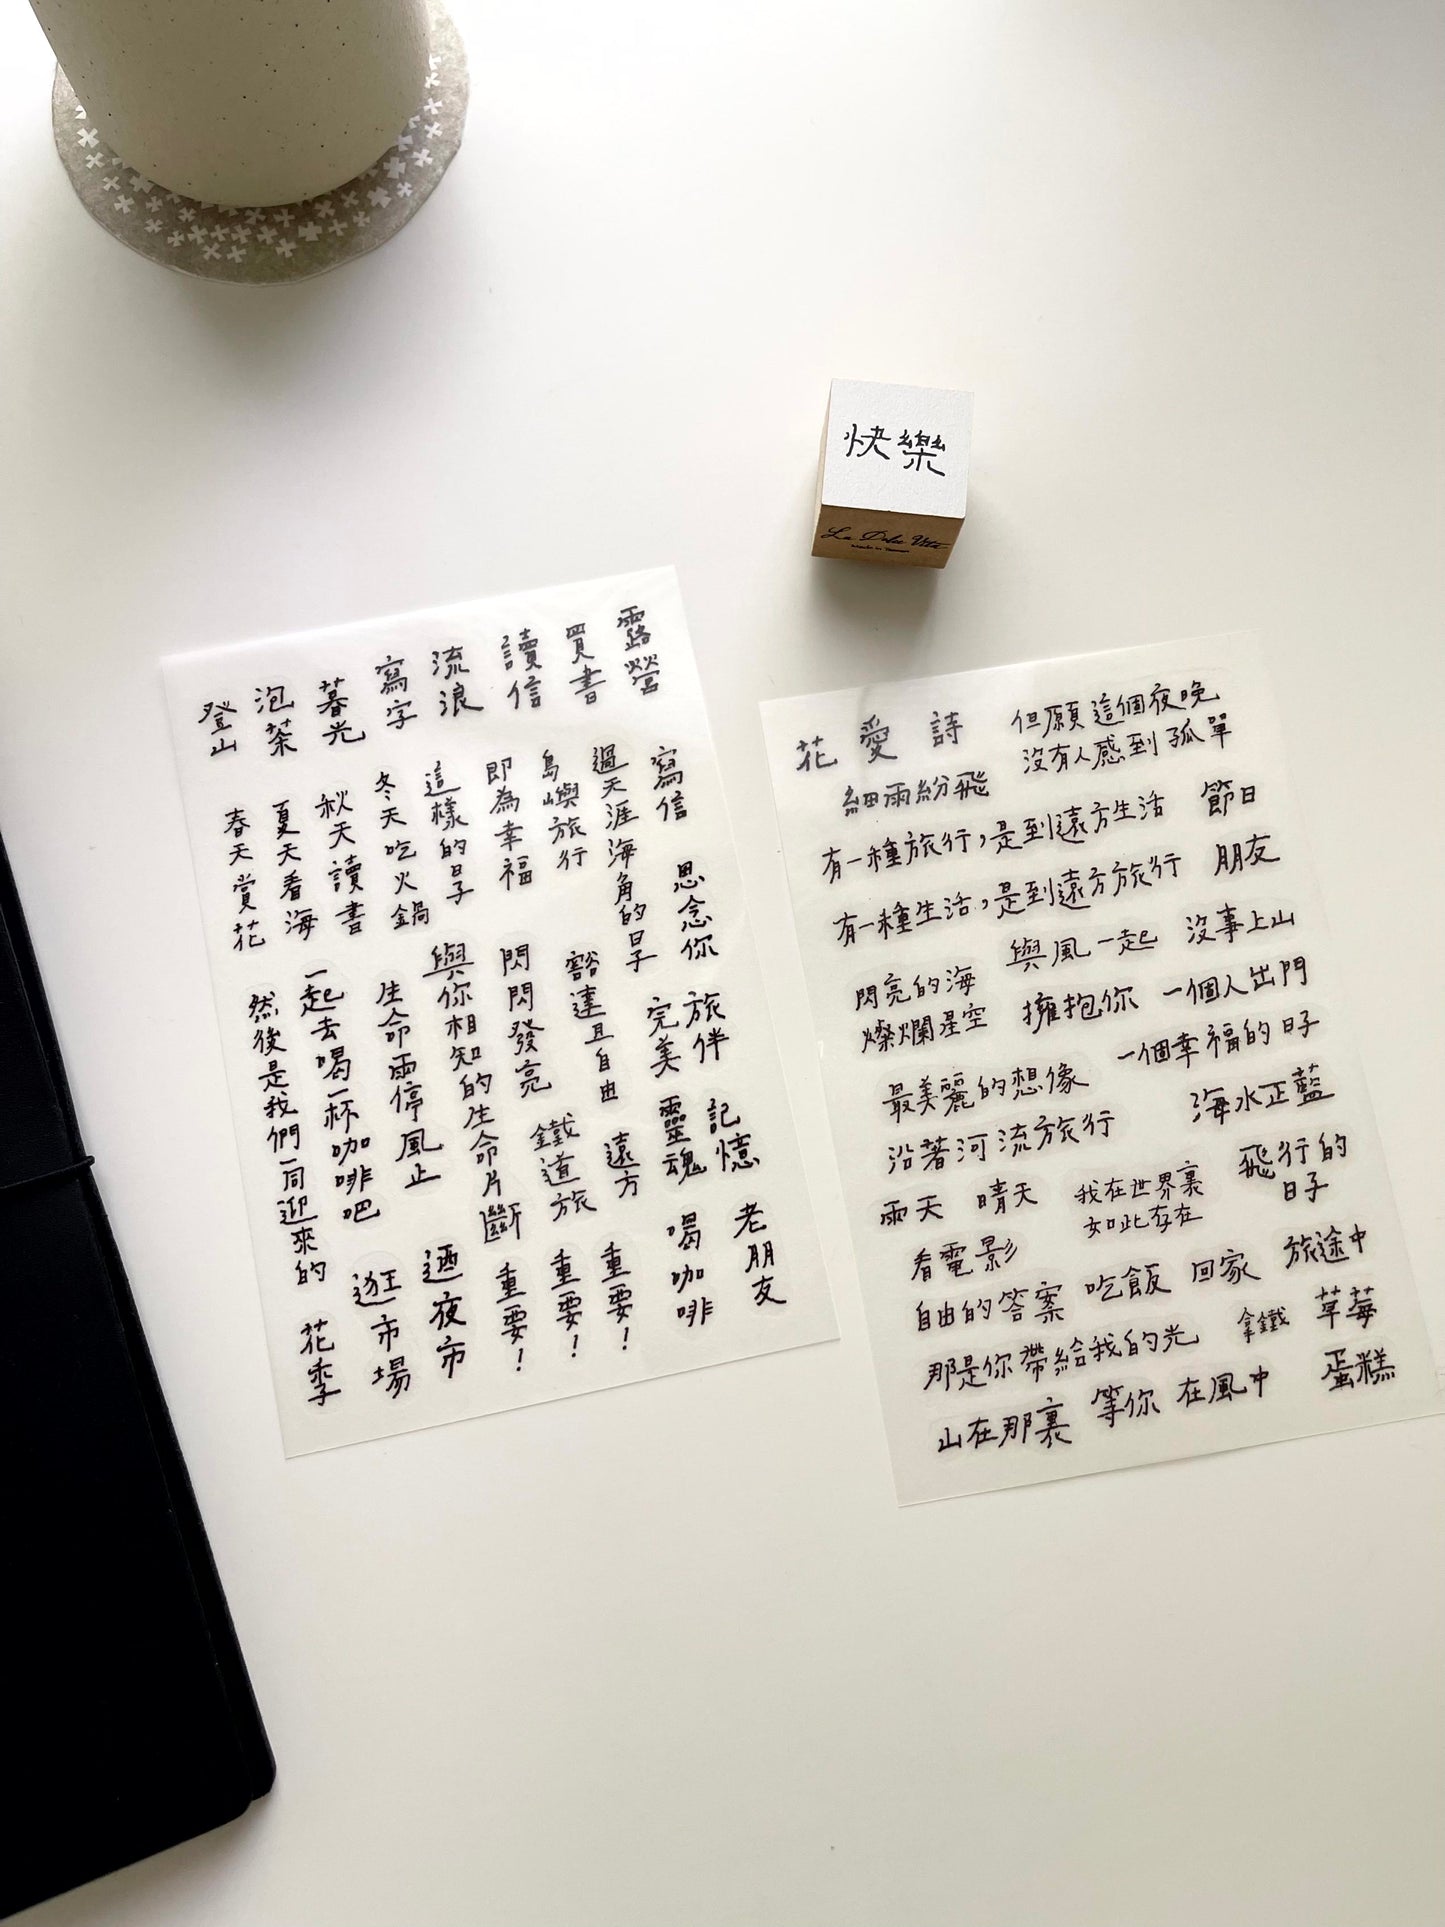 快樂
La Dolce Vita
Made in Taiwan
登山
泡茶
暮光
寫字
流浪
讀信
買書
露營
春天賞花
夏天看海
秋天讀書
冬天吃火鍋
這樣的日子
即為幸福
島嶼旅行
過天涯海角的日子
寫信
思念你
然後是我們一同迎來的
花季
一起去喝一杯咖啡吧
生命雨停風止
與你相知的生命片斷
閃閃發亮
豁達且自由
完美
旅伴
鐵道旅
遠方
靈魂
記憶
逛市場
迺夜市
重要!
重要!
重要!
喝咖啡
老朋友
花
愛
詩
但願這個夜晚
沒有人感到孤單
細雨紛飛
有一種旅行,是到遠方生活
節日
有一種生活,是到遠方旅行
朋友
與風一起
沒事上山
閃亮的海
燦爛星空
擁抱你
一個人出門
最美麗的想像
一個幸福的日子
沿著河流旅行
海水正藍
雨天
晴天
我在世界裏
如此存在
飛行的
日子
看電影
自由的答案
吃飯
回家
旅途中
那是你帶給我的光
拿鐵
草莓
山在那裏
等你
在風中
蛋糕